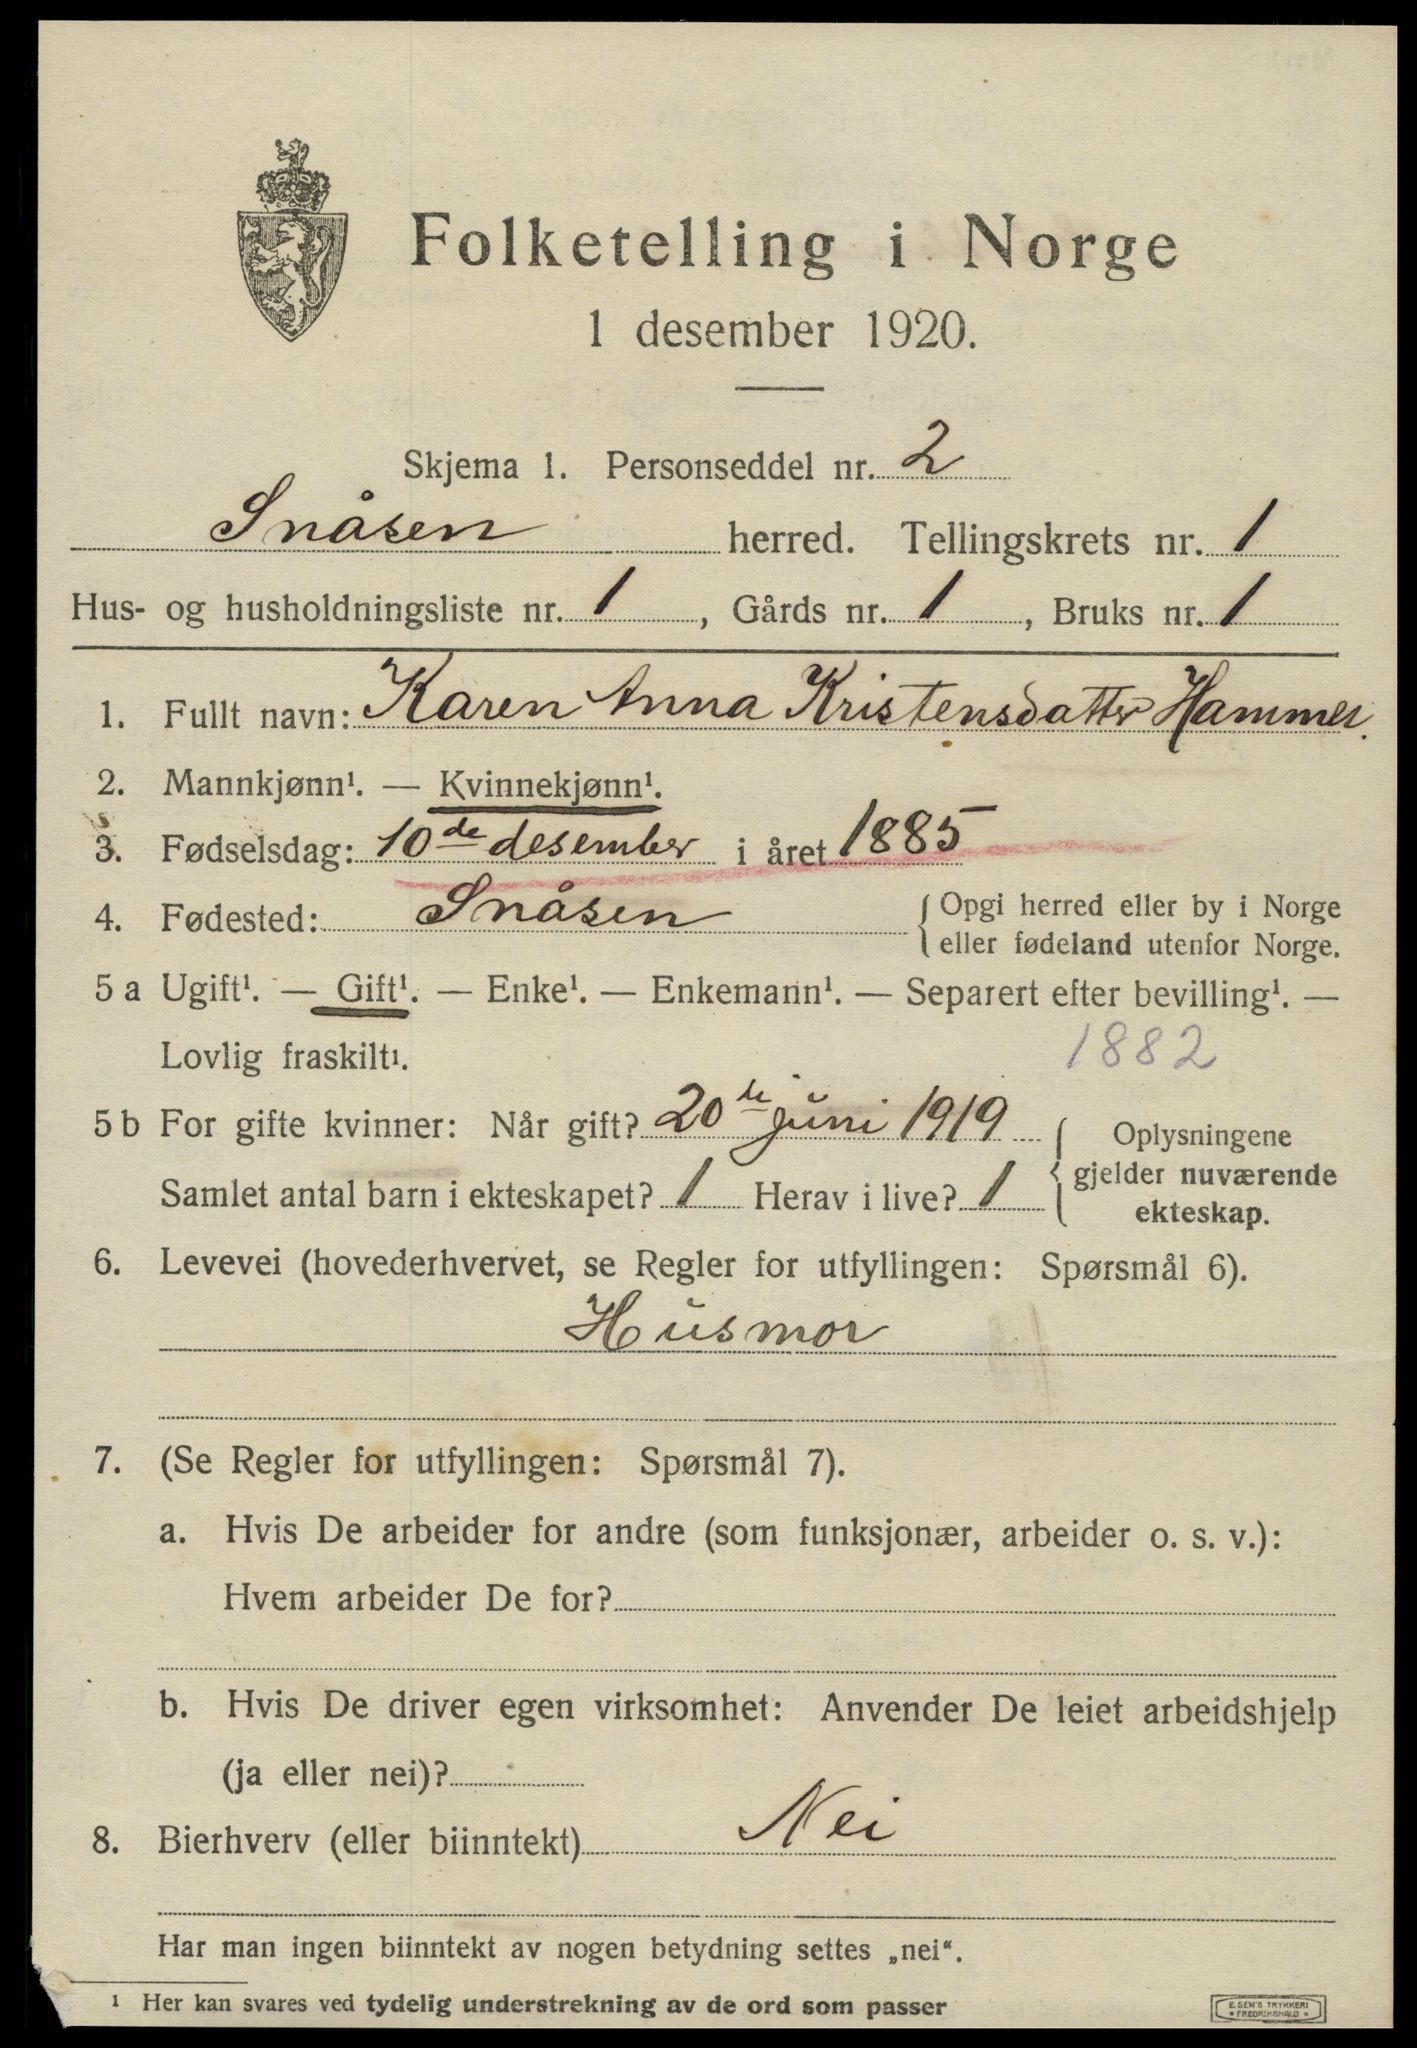 Folketelling i Norge
1 desember 1920.
Skjema 1. Personseddel nr. 2
Snåsen herred. Tellingskrets nr. 1
Hus- og husholdningsliste nr. 1, Gårds nr. 1, Bruks nr. 1
1. Fullt navn: Karen Anna Kristensdatter Hammer.
2. Mannkjønn¹. — Kvinnekjønn¹.
3. Fødselsdag: 10de desember i året 1885
4. Fødested: Snåsen { Opgi herred eller by i Norge
eller fødeland utenfor Norge.
5 a Ugift¹. — Gift¹. — Enke¹. — Enkemann¹. — Separert efter bevilling¹. —
Lovlig fraskilt¹. 1882
5 b For gifte kvinner: Når gift? 20de juni 1919 { Oplysningene
gjelder nuværende
ekteskap.
Samlet antal barn i ekteskapet? 1 Herav i live? 1
6. Levevei (hovederhvervet, se Regler for utfyllingen: Spørsmål 6).
Husmor
7. (Se Regler for utfyllingen: Spørsmål 7).
a. Hvis De arbeider for andre (som funksjonær, arbeider o. s. v.):
Hvem arbeider De for?
b. Hvis De driver egen virksomhet: Anvender De leiet arbeidshjelp
(ja eller nei)?
8. Bierhverv (eller biinntekt) Nei
Har man ingen biinntekt av nogen betydning settes „nei“.
¹ Her kan svares ved tydelig understrekning av de ord som passer
E. SEM'S TRYKKERI
* FREDRIKSHALD *